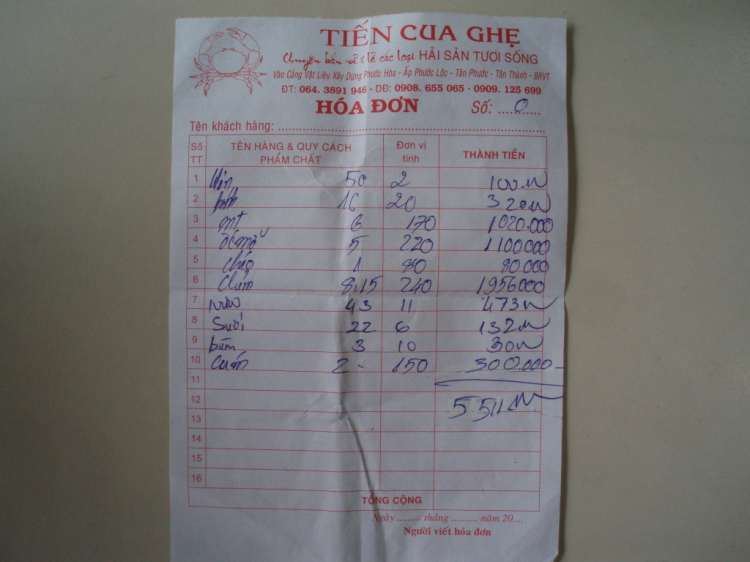 TIẾN CUA GHẸ
Chuyên bán sỉ & lẻ các loại HẢI SẢN TƯƠI SỐNG
Văn Cảng Vật Liệu Xây Dựng Phước Hòa - Ấp Phước Lộc - Tân Phước - Tân Thành - BRVT
ĐT: 064. 3891 946 - DĐ: 0908. 655 065 - 0909. 125 699
HÓA ĐƠN Số: 0
Tên khách hàng:
Số TT TÊN HÀNG & QUY CÁCH PHẨM CHẤT Đơn vị tính THÀNH TIỀN
1 50 2 100.N
2 16 20 320N
3 6 170 1020.000
4 5 220 1100000
5 1 80 80.000
6 8,15 240 1956000
7 43 11 473N
8 Suối 22 6 132N
9 bún 3 10 30N
10 2 - 150 300.000
11
12 5511N
13
14
15
16
TỔNG CỘNG
Ngày ......... tháng ........... năm 20....
Người viết hóa đơn